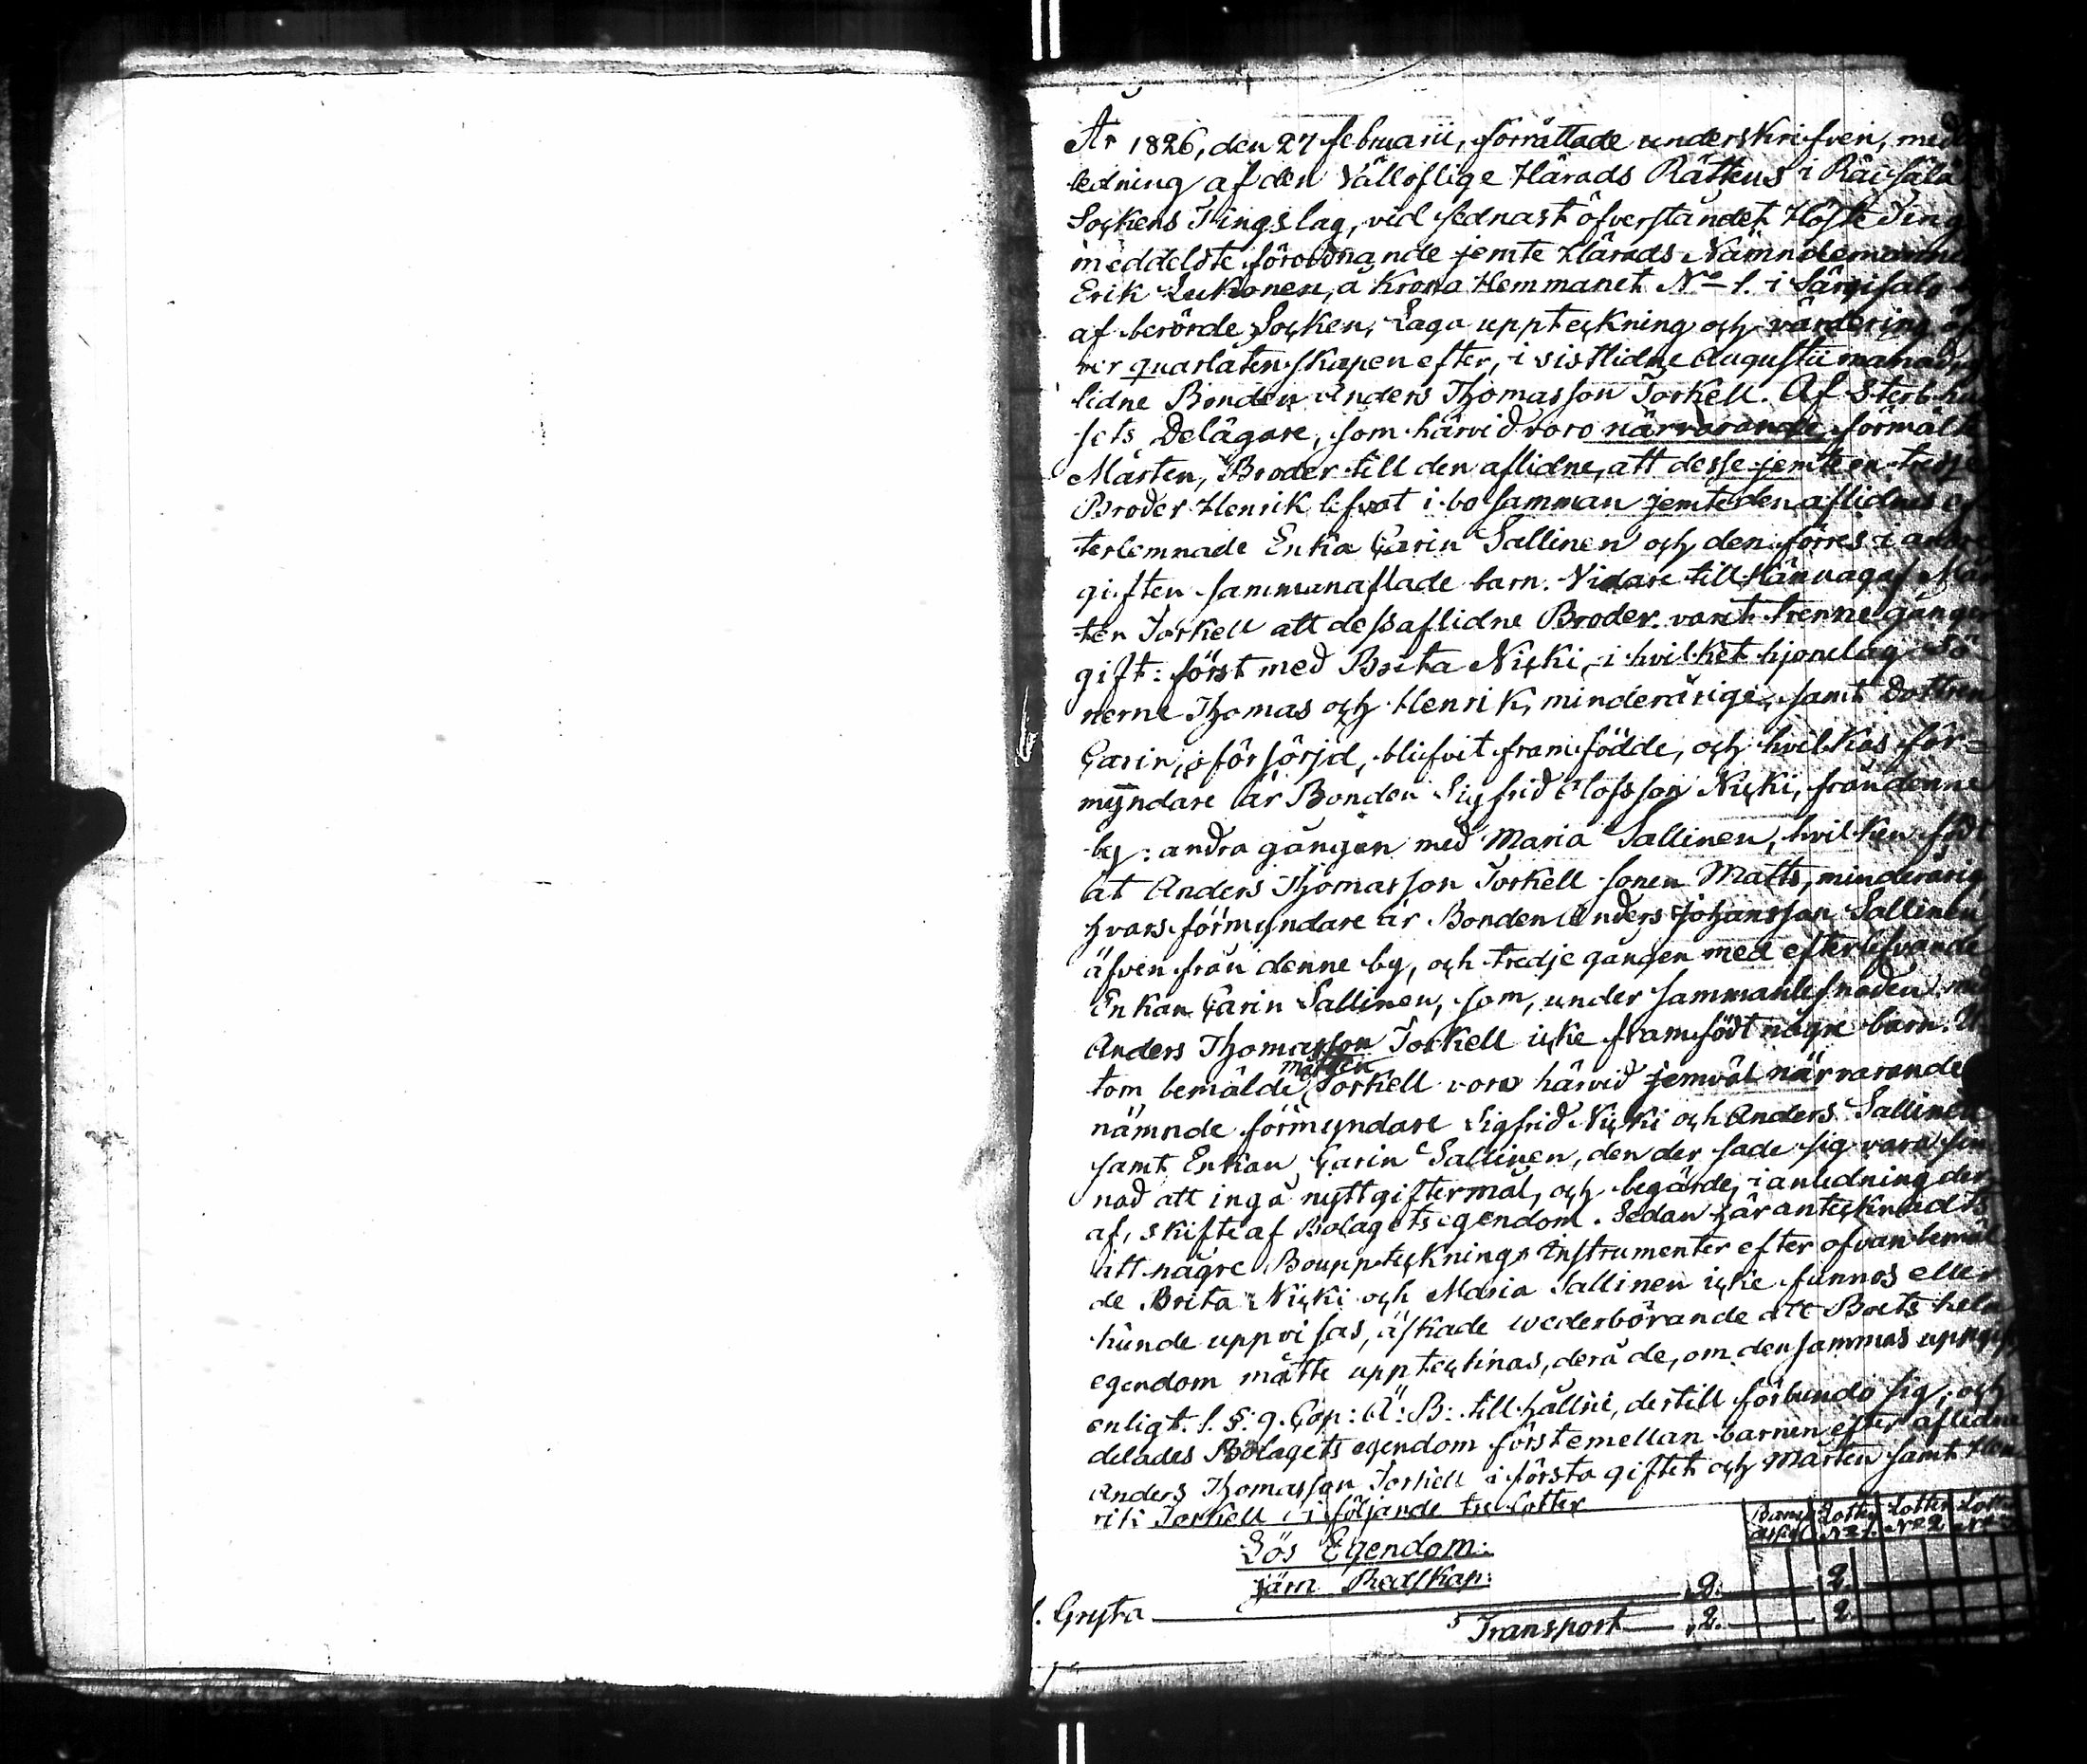 År 1826, den 27 februarii, förrättade underskrifven, med
ledning af den Välloflige Härads Rättens i Räisälä
Sockens Tingslag, vid sednast öfverståndet Höste Ting
meddelste förordnande jemte Härads Nämndemannen
Erik Lukonen, å Krono Hemmanet No 1. i Särgisalo
af berörde Socken, Laga uppteckning och värdering öf-
ver quarlåtenskapen efter, i sistlidne Augustii månad
lidne Bonden Anders Thomasson Torkell. Af Sterbhu
sets Delägare, som härvid voro närvarande, förmälte
Mårten, Broder till den aflidne, att desse jemte en tredje
Broder Henrik lefvat i bo samman jemte den aflidnes ef-
terlemnade Enka Carin Sallinen och den förres i andre
giften sammanaflade barn. Vidare tillkännagaf Mår
ten Torkell att dess aflidne Broder varit trenne gånger
gift: först med Brita Nicki, i hvilket hjonelag Sö-
nerne Thomas och Henrik, minderårige, samt dottren
Carin, oförsörjd, blifvit framfödde, och hvilkas för-
myndare är Bonden Sigfrid Olofsson Nicki, från denne
by: andra gången med Maria Sallinen, hvilken födt
åt Anders Thomasson Torkell sonen Matts, minderårig
hvars förmyndare är Bonden Anders Johansson Sallinen
äfven från denne by, och tredje gången med efterlefvande
Enkan Carin Sallinen, som, under sammanlefnaden med
Anders Thomasson Torkell icke framfödt någre barn. U
tom bemälde Mårten Torkell voro härvid jemväl närvarande
nämnde förmyndare Sigfrid Nicki och Anders Sallinen
samt Enkan Carin Sallinen, den der sade sig vara sin
nad att ingå nytt giftermål, och begärde, i anledning der
af, skifte af Bolagets egendom. Sedan här antecknadts
att någre Bouppteckninga Instrumenter efter ofvanbemäl
de Brita Nicki och Maria Sallinen icke funnos eller
kunde uppvisas, äskade wederbörande att Boets hela
egendom måtte upptecknas, derå de, om densammas uppgift
enligt. 1. §: 9. Cap: Ä: B: tillhållne, dertill förbundo sig; och
delades Bolagets egendom först emellan barnen efter aflidne
Anders Thomasson Torkell i första giftet och Mårten samt Hen
rik Torkell i följande tre Lotter
Lotten No 1. Lotten No 2 Lotten
Lös Egendom:
Järn Redskap:
1. Gryta 2. 2.
Transport 2. 2